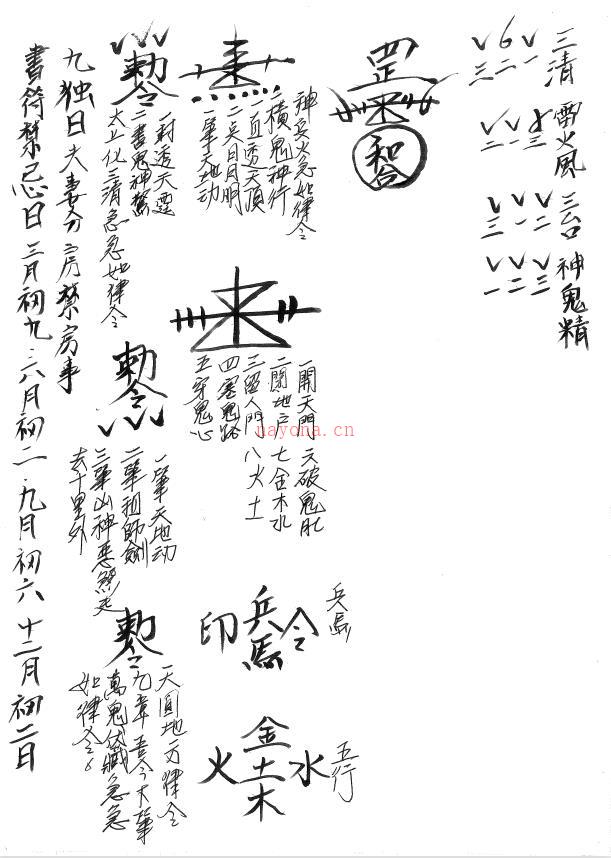 三清
三 二 一
雷火風
三台
三 一 二
神鬼精
一 二 三
罡
和合
兵馬
兵馬
印 令
五行
金
火 土 水
木
神兵火急如律令
一橫鬼神行
一直透天頂
二点日月明
一筆天地动
一開天門
二閉地户
三留人門
四塞鬼路
五穿鬼心
六破鬼肚
七金木水
八火土
敕令
一封透天霊
二書鬼神驚
太上化三清急急如律令
勅令
一筆天地动
二筆祖師劍
三筆山神恶煞走
去千里外
敕令
一天圓地方律令
九章
萬鬼伏藏急急
如律令
九独日夫妻分房禁房事
書符禁忌日三月初九.六月初二.九月初六 十二月初二日
nayona.cn